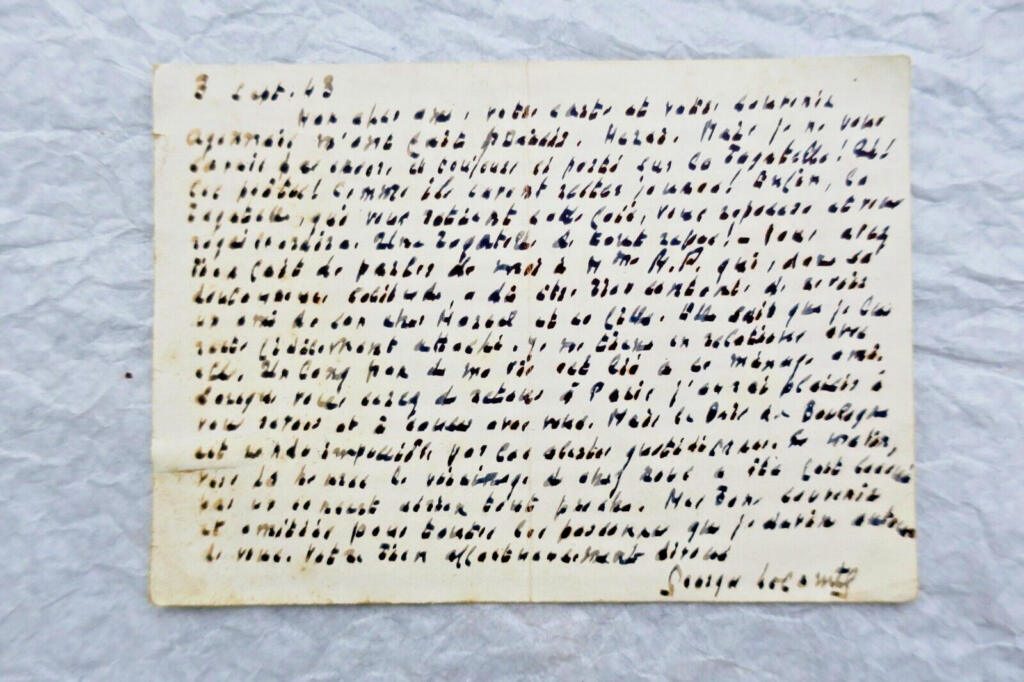 3 Sept. 43
Mon cher ami, votre carte et votre souvenir
agennais m'ont fait plaisir. Merci. Mais je ne vous
savais encore et toujours si porté sur la bagatelle! Ah!
les poètes! Comme ils savent rester jeunes! Enfin, la
bagatelle, qui vous retient cette fois, vous reposera et vous
Une bagatelle de tout repos! – Vous avez
bien fait de parler de moi à Mme M.P. qui, dans sa
douloureuse solitude, a dû être bien contente de revoir
un ami de son cher Marcel et sa fille. Elle sait que je leur
reste fidèlement attaché. Je me tiens en relations avec
elle. Un long pan de ma vie est lié à ce ménage ami.
Lorsque vous serez de retour à Paris j'aurai plaisir à
vous revoir et à causer avec vous. Mais le Bois de Boulogne
est rendu impossible par les alertes quotidiennes. Ce matin,
vers 10 heures le voisinage de chez nous a été fort
par un concert aérien tout proche. Mes bons souvenirs
et amitiés pour toutes les personnes que je devine autour
de vous. Votre bien affectueusement dévoué
Georges Lecomte